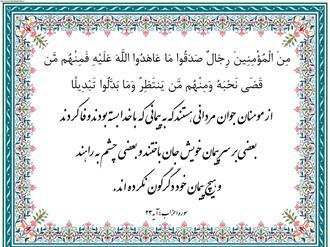 مِنَ الْمُؤْمِنِينَ رِجَالٌ صَدَقُوا مَا عَاهَدُوا اللَّهَ عَلَيْهِ فَمِنْهُم مَّن
قَضَى نَحْبَهُ وَمِنْهُم مَّن يَنتَظِرُ وَمَا بَدَّلُوا تَبْدِيلًا
از مومنان جوان مردانی هستند که به پیمانی که با خدا بسته بودند وفا کردند
بعضی بر سر پیمان خویش جان باختند و بعضی چشم به راهند
و هیچ پیمان خود دگرگون نکرده اند.
سوره احزاب آیه ۲۳